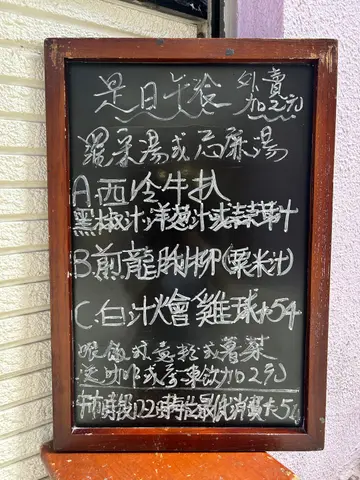 是日午餐 外賣加2元
羅宋湯或忌廉湯
A.西冷牛扒
黑椒汁.洋葱汁或蒜茸汁
B.煎龍脷柳(粟米汁)
C.白汁燴雞球 $54
跟飯或意粉或薯菜
送咖啡或茶凍飲加2元
最低消費 $54